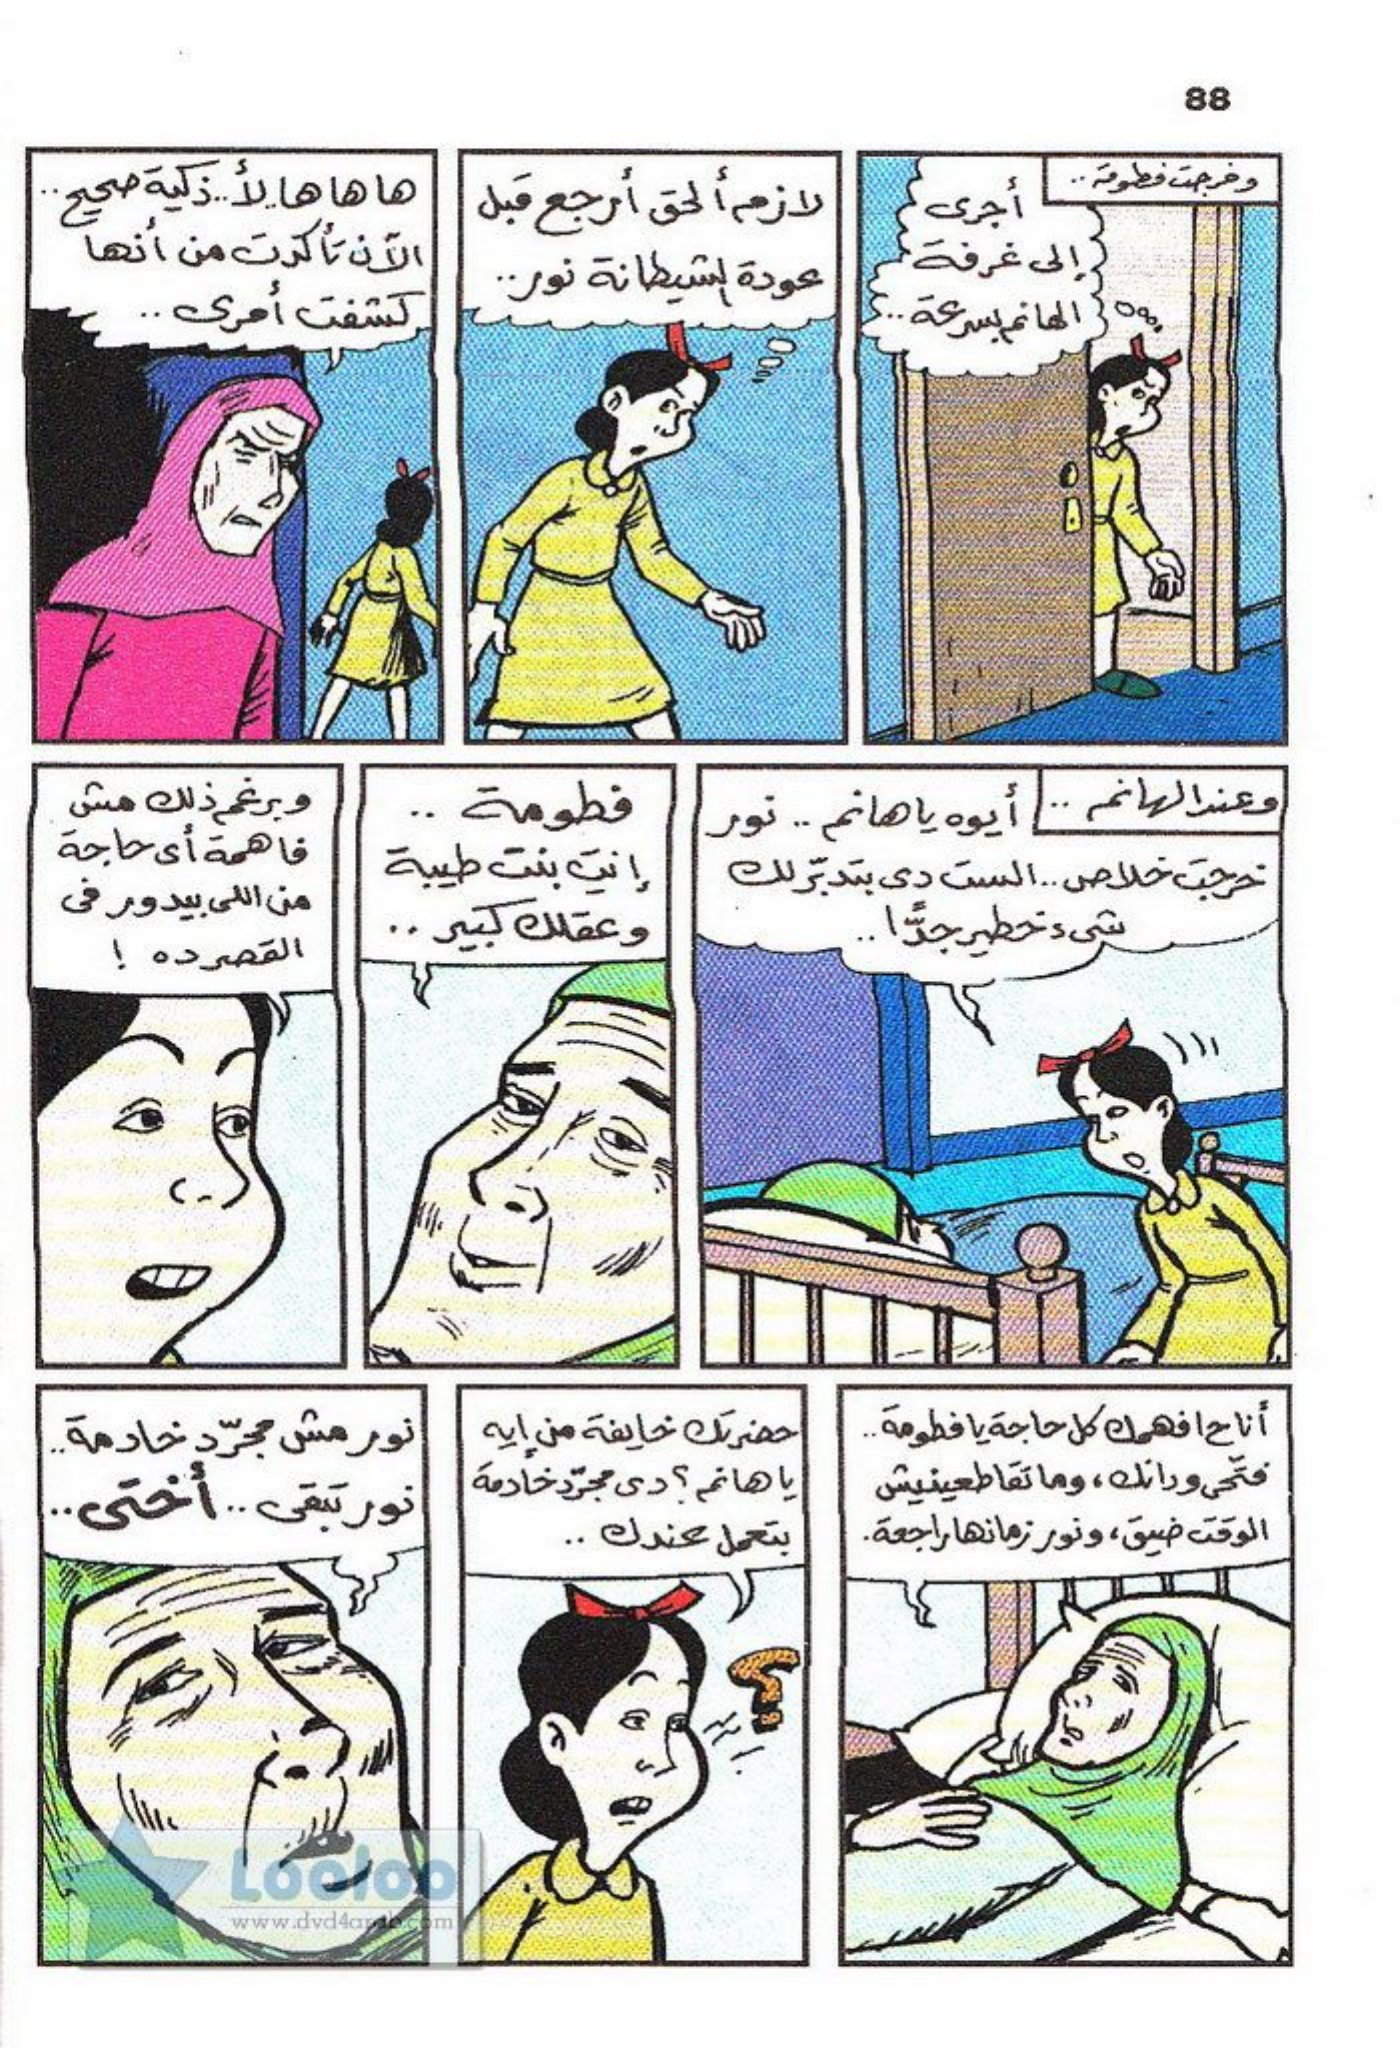 88
وخرجت فطومة ..
أجرى
إلى غرفة
الهانم بسرعة ..
لازم ألحق أرجع قبل
عودة الشيطانة نور ..
ها ها ها . لأ .. ذكية صحيح ..
الآن تأكدت من أنها
كشفت أمرى ..
وعند الهانم ..
أيوه يا هانم .. نور
خرجت خلاص .. الست دى بتدبّر لك
شىء خطير جدًّا ..
فطومة ..
إنتِ بنت طيبة
وعقلك كبير ..
وبرغم ذلك مش
فاهمة أى حاجة
من اللى بيدور فى
القصر ده !
أنا ح افهمك كل حاجة يا فطومة ..
فتّحى ودانك ، وما تقاطعينيش
الوقت ضيق ، ونور زمانها راجعة .
حضرتك خايفة من إيه
يا هانم ؟ دى مجرّد خادمة
بتعمل عندك ..
نور مش مجرّد خادمة ..
نور تبقى .. أختى ..
Looloo
www.dvd4arab.com